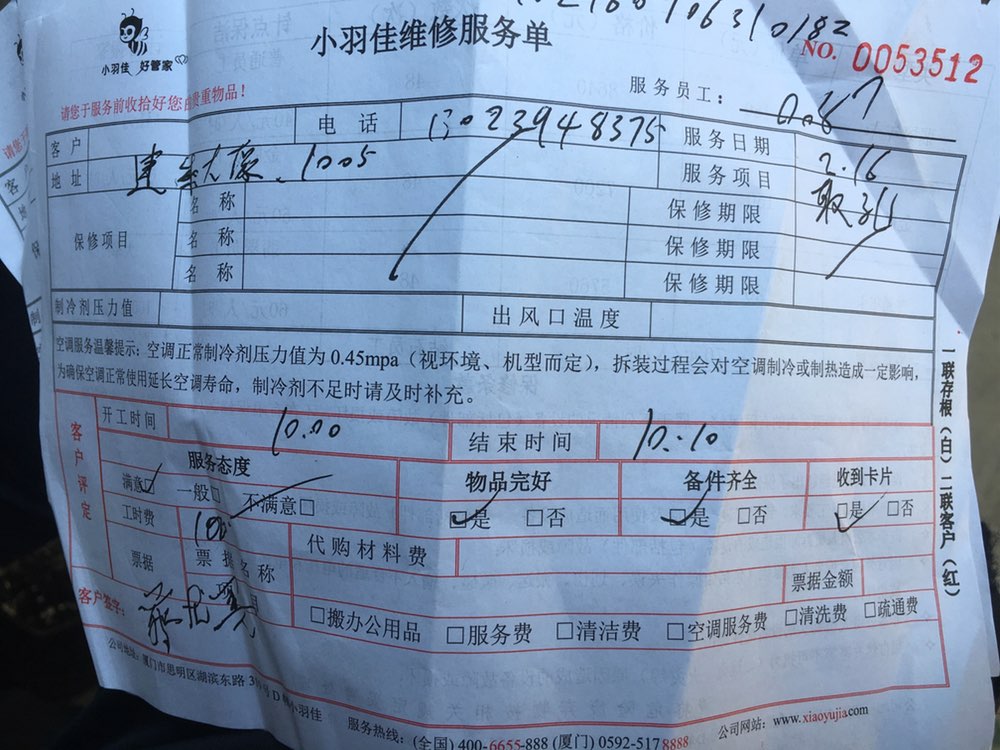 小羽佳 好管家
小羽佳维修服务单
NO. 0053512
请您于服务前收拾好您的贵重物品!
服务员工:
客户 电话 13023948375 服务日期 2.16
地址 1005 服务项目
保修项目
名称 保修期限
名称 保修期限
名称 保修期限
制冷剂压力值 出风口温度
空调服务温馨提示: 空调正常制冷剂压力值为 0.45mpa(视环境、机型而定),拆装过程会对空调制冷或制热造成一定影响,
为确保空调正常使用延长空调寿命,制冷剂不足时请及时补充。
客户评定
开工时间 10.00 结束时间 10.10
服务态度 物品完好 备件齐全 收到卡片
满意☑ 一般□ 不满意□ ☑是 □否 ☑是 □否 ☑是 □否
工时费 100 代购材料费
票据 票据名称 票据金额
□搬办公用品 □服务费 □清洁费 □空调服务费 □清洗费 □疏通费
客户签字:
公司地址: 厦门市思明区湖滨东路 小羽佳
服务热线: (全国) 400-6655-888 (厦门) 0592-5178888
公司网站: www.xiaoyujia.com
一联存根(白)二联客户(红)